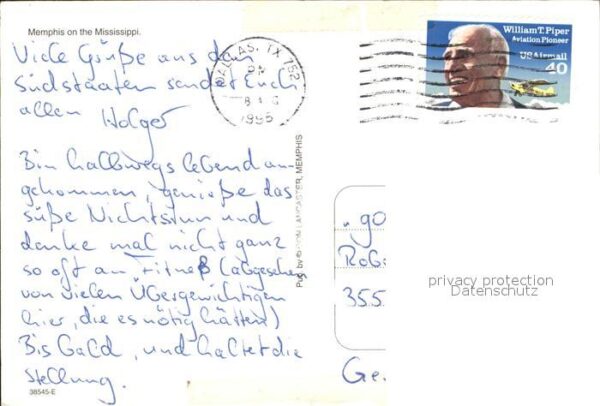 Memphis on the Mississippi.
Viele Grüße aus den
Südstaaten sendet Euch
allen Holger
Bin halbwegs lebend an-
gekommen, genieße das
süße Nichtstun und
denke mal nicht ganz
so oft an Fitneß (abgesehen
von vielen Übergewichtigen
hier, die es nötig hätten)
Bis bald, und haltet die
Stellung.
38545-E
Pub. by LANCASTER, MEMPHIS
DALLAS, TX 752
PM
1995
William T. Piper
Aviation Pioneer
US Airmail
40
"go
355
Ge
privacy protection
Datenschutz